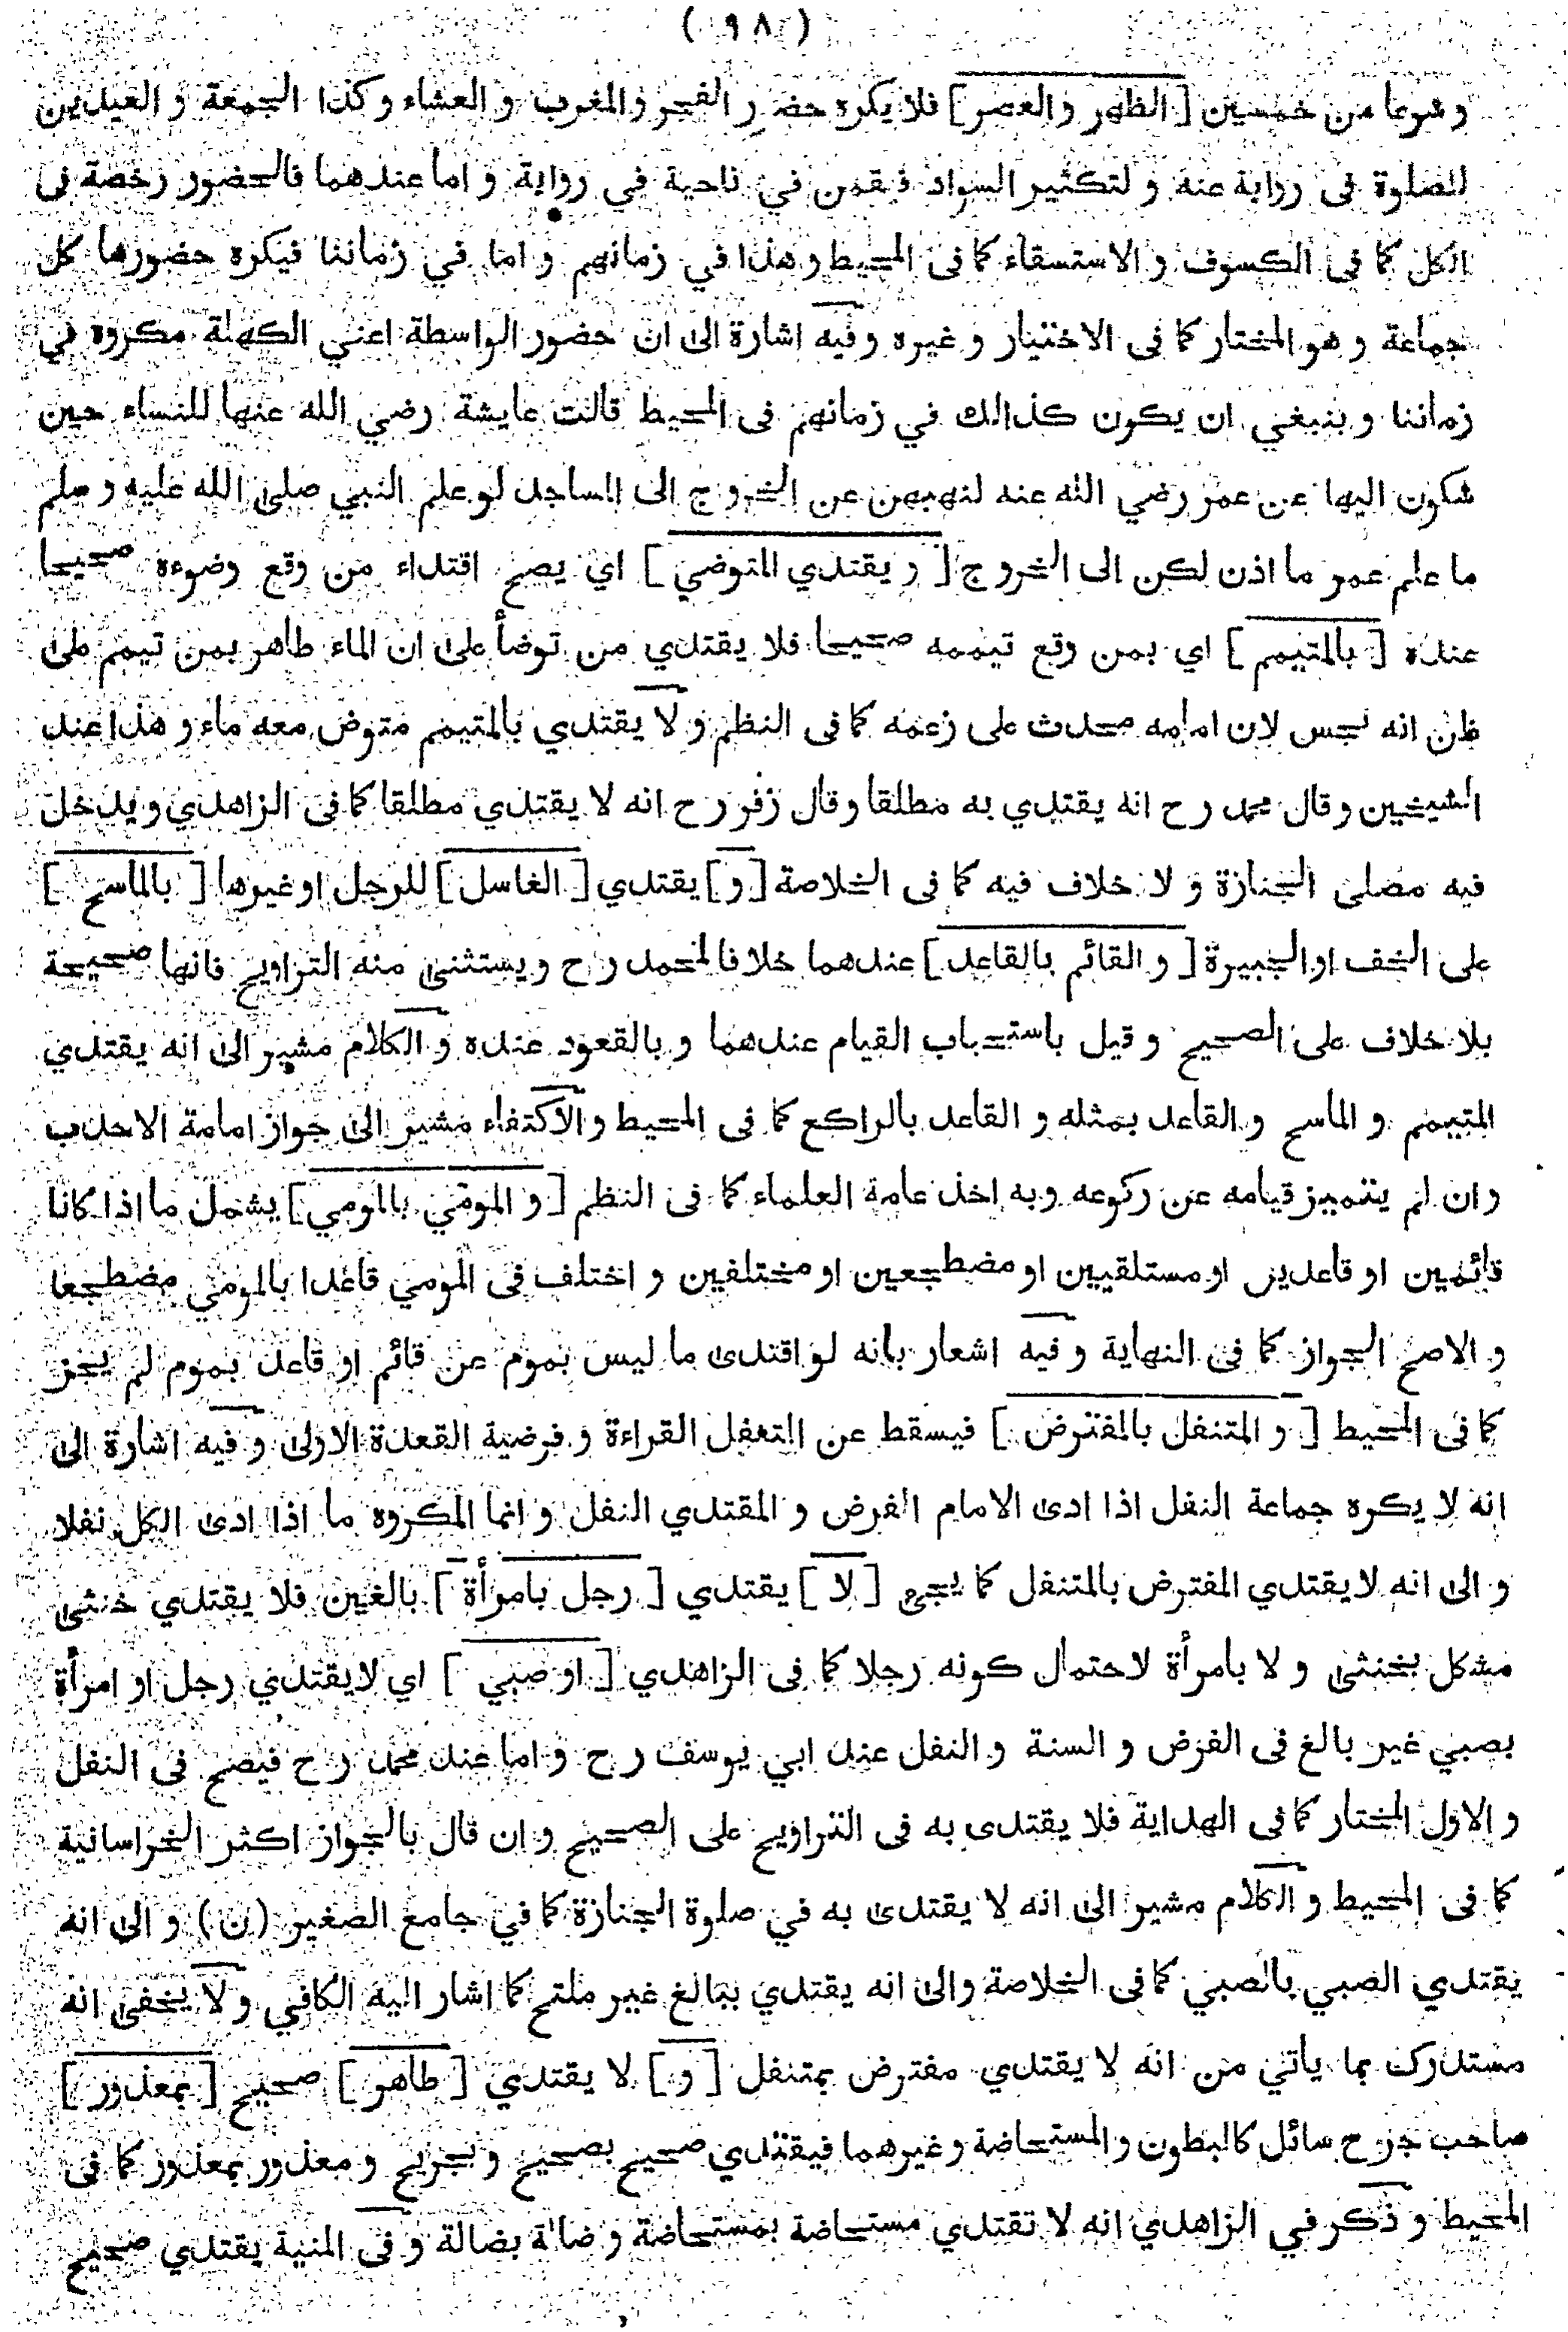 ( ٩٨ )
وشرعا من خمسين [ الظهر والعصر ] فلا يكره حضر الفجر والمغرب و العشاء وكذا الجمعة و العيدين
للصلوة فى رواية عنه و لتكثير السواد فيقمن في ناحية في رواية و اما عندهما فالحضور رخصة فى
الكل كما فى الكسوف و الاستسقاء كما فى المحيط وهذا في زمانهم و اما في زماننا فيكره حضورها كل
جماعة و هو المختار كما فى الاختيار و غيره وفيه اشارة الى ان حضور الواسطة اعني الكهلة مكروه في
زماننا و ينبغي ان يكون كذالك في زمانهم فى المحيط قالت عايشة رضي الله عنها للنساء حين
شكون اليها عن عمر رضي الله عنه لنهيهن عن الخروج الى المساجد لو علم النبي صلى الله عليه وسلم
ما علم عمر ما اذن لكن الى الخروج [ و يقتدي المتوضي ] اي يصح اقتداء من وقع وضوءه صحيحا
عنده [ بالمتيمم ] اي بمن وقع تيممه صحيحا فلا يقتدي من توضأ على ان الماء طاهر بمن تيمم على
ظن انه نجس لان امامه محدث على زعمه كما فى النظم و لا يقتدي بالمتيمم متوض معه ماء و هذا عند
الشيخين وقال محمد رح انه يقتدي به مطلقا وقال زفر رح انه لا يقتدي مطلقا كما فى الزاهدي ويدخل
فيه مصلى الجنازة و لا خلاف فيه كما فى الخلاصة [ و ] يقتدي [ الغاسل ] للرجل اوغيرها [ بالماسح ]
على الخف او الجبيرة [ و القائم بالقاعد ] عندهما خلافا لمحمد رح ويستثنى منه التراويح فانها صحيحة
بلا خلاف على الصحيح و قيل باستحباب القيام عندهما و بالقعود عنده و الكلام مشير الى انه يقتدي
المتيمم و الماسح و القاعد بمثله و القاعد بالراكع كما فى المحيط و الاكتفاء مشير الى جواز امامة الاحدب
و ان لم يتميز قيامه عن ركوعه وبه اخذ عامة العلماء كما فى النظم [ و المومي بالمومي ] يشمل ما اذا كانا
قائمين او قاعدين او مستلقيين او مضطجعين او مختلفين و اختلف فى المومي قاعدا بالمومي مضطجعا
و الاصح الجواز كما فى النهاية و فيه اشعار بانه لو اقتدى ما ليس بموم عن قائم او قاعد بموم لم يجز
كما فى المحيط [ و المتنفل بالمفترض ] فيسقط عن المتنفل القراءة و فرضية القعدة الاولى و فيه اشارة الى
انه لا يكره جماعة النفل اذا ادى الامام الفرض و المقتدي النفل و انما المكروه ما اذا ادى الكل نفلا
و الى انه لا يقتدي المفترض بالمتنفل كما يجئ [ لا ] يقتدي [ رجل بامرأة ] بالغين فلا يقتدي خنثى
مشكل بخنثى و لا بامرأة لاحتمال كونه رجلا كما فى الزاهدي [ او صبي ] اي لا يقتدي رجل او امرأة
بصبي غير بالغ فى الفرض و السنة و النفل عند ابي يوسف رح و اما عند محمد رح فيصح فى النفل
و الاول المختار كما فى الهداية فلا يقتدى به فى التراويح على الصحيح و ان قال بالجواز اكثر الخراسانية
كما فى المحيط و الكلام مشير الى انه لا يقتدى به في صلوة الجنازة كما في جامع الصغير (ن) و الى انه
يقتدي الصبي بالصبي كما فى الخلاصة والى انه يقتدي ببالغ غير ملتح كما اشار اليه الكافي و لا يخفى انه
مستدرك بما ياتي من انه لا يقتدي مفترض بمتنفل [ و ] لا يقتدي [ طاهر ] صحيح [ بمعذور ]
صاحب جرح سائل كالمبطون و المستحاضة و غيرهما فيقتدي صحيح بصحيح و بجريح و معذور بمعذور كما فى
المحيط و ذكر في الزاهدي انه لا تقتدي مستحاضة بمستحاضة و ضالة بضالة و فى المنية يقتدي صحيح